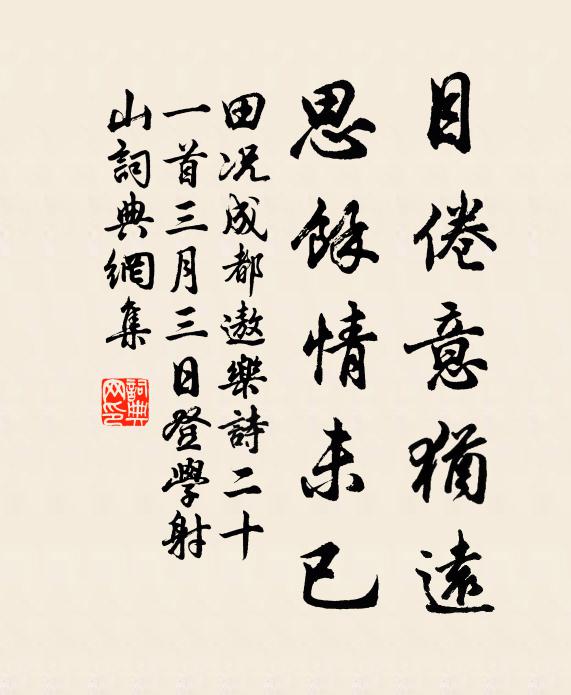 目倦意猶遠
思餘情未已
田况成都遨樂詩二十
一首三月三日登學射
山詞典網集
詞典网印